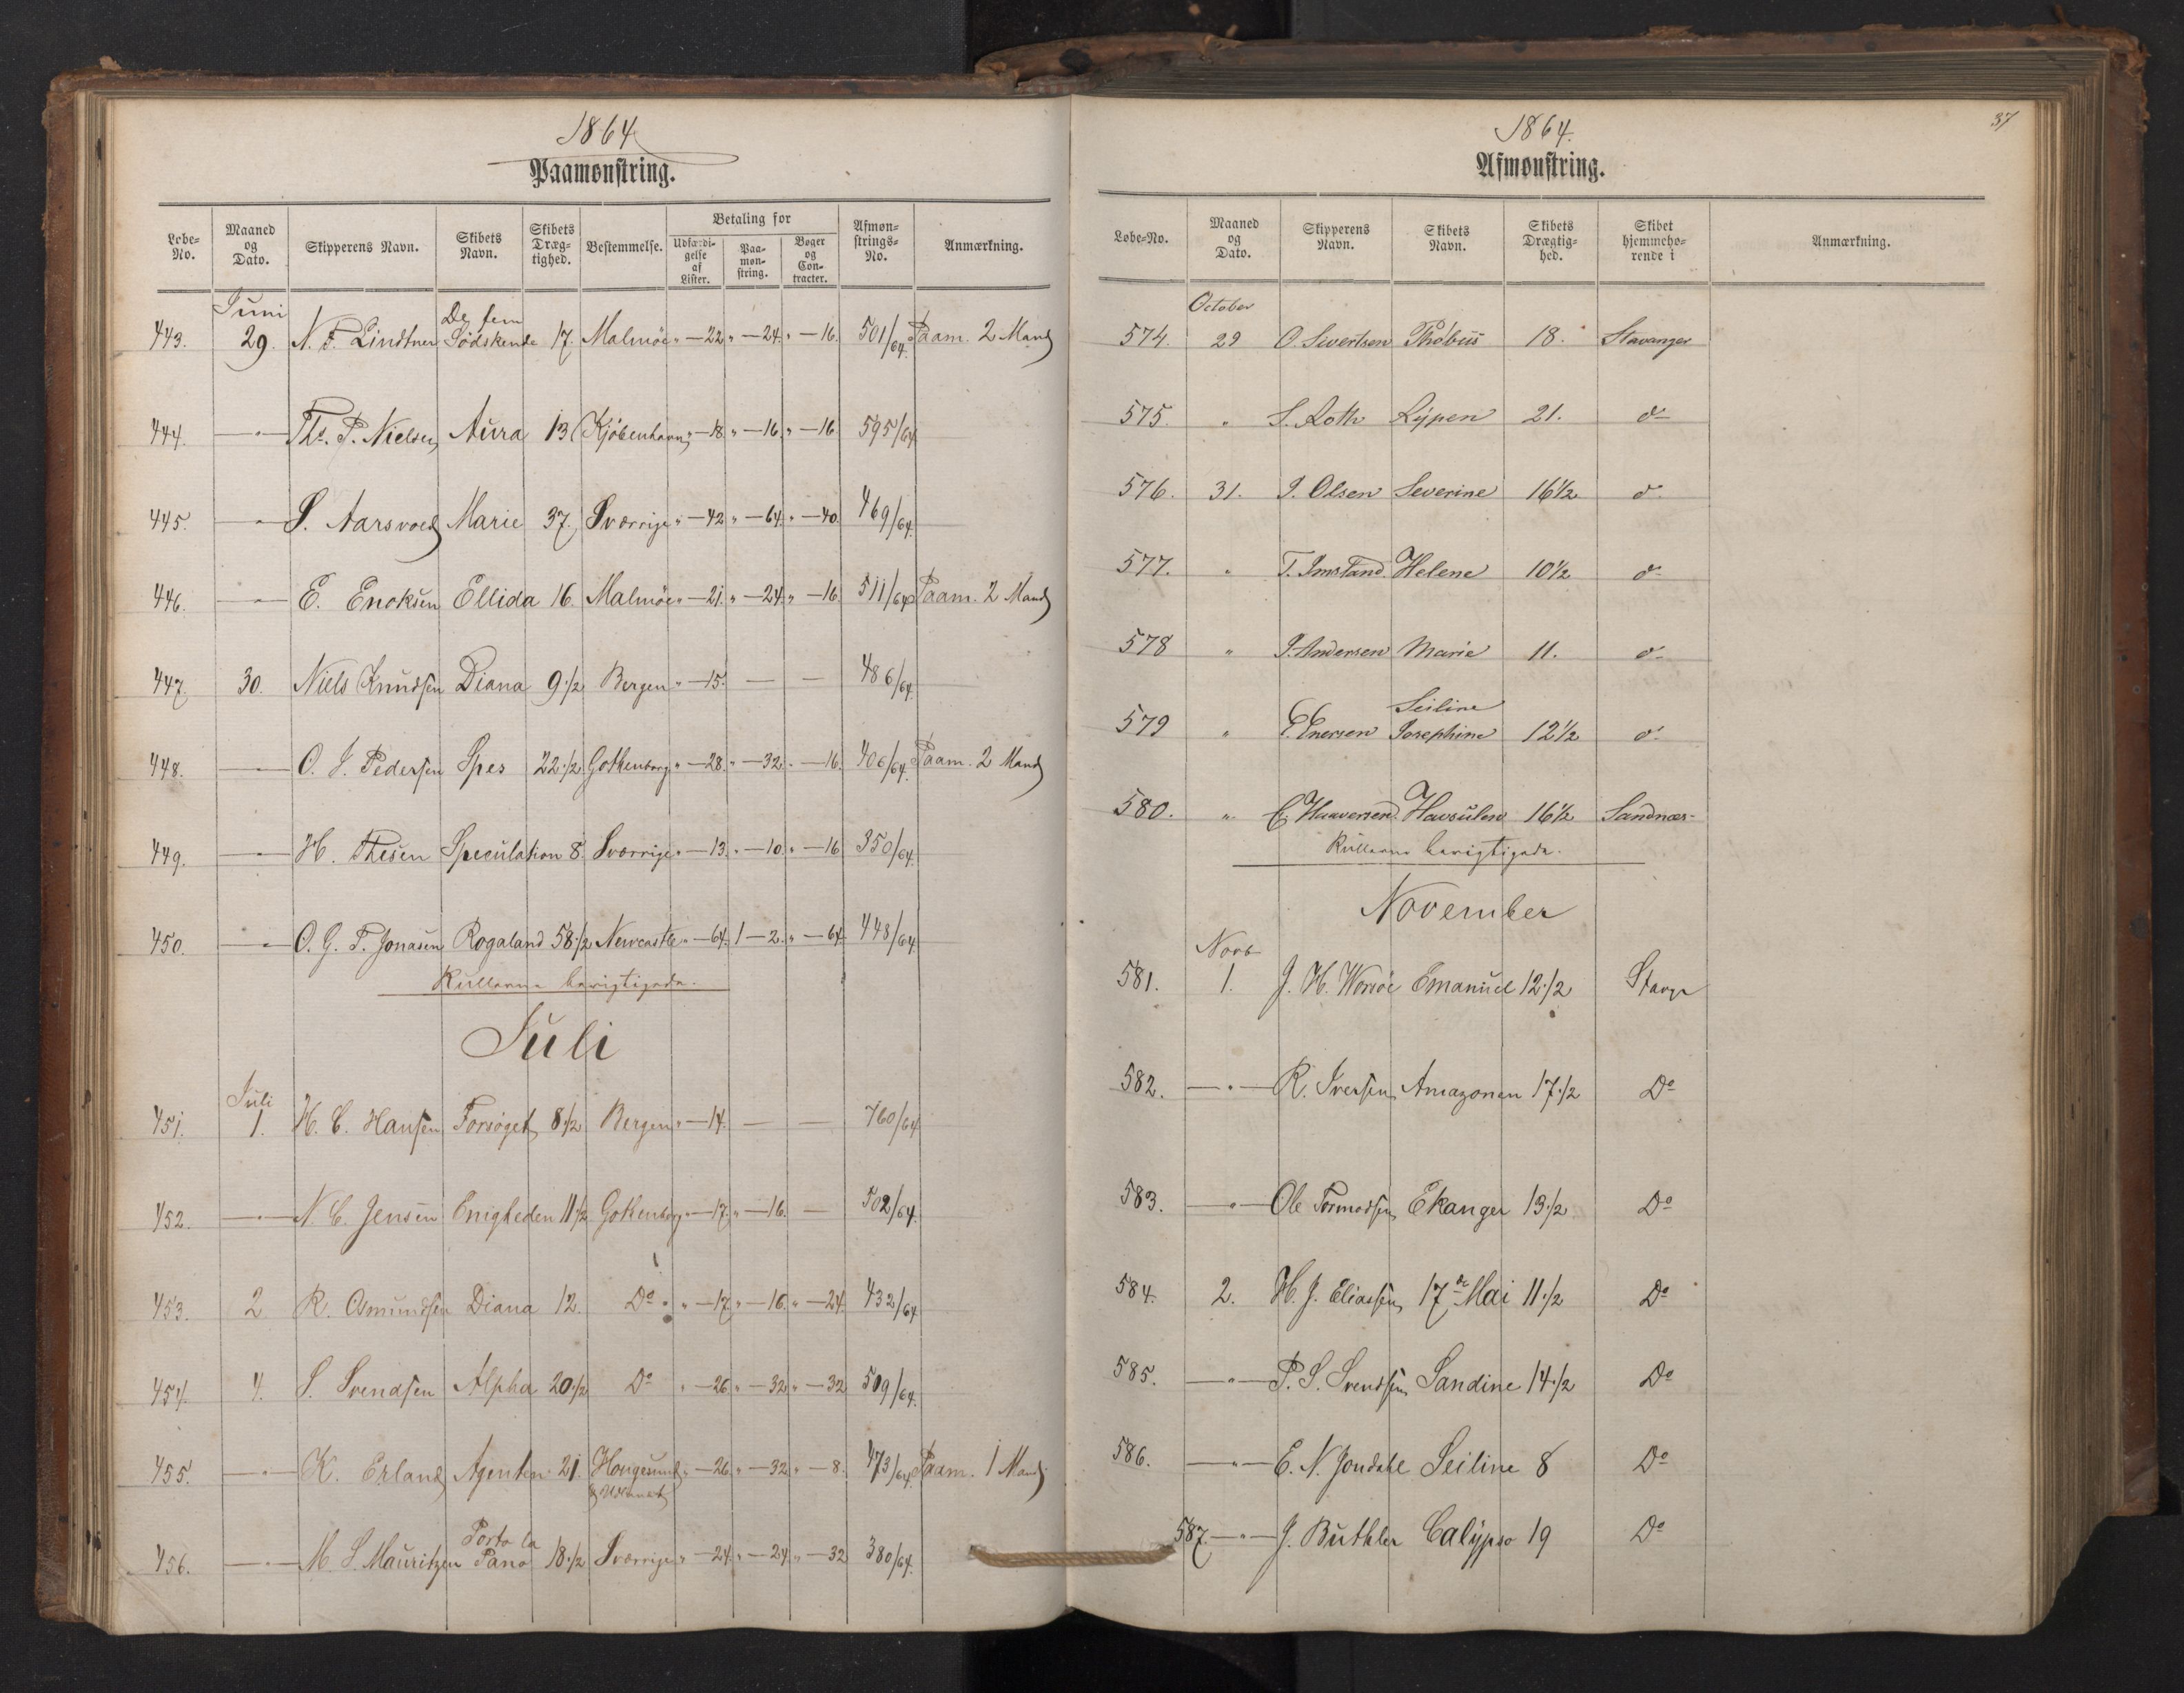 1864
Paamønstring.
Løbe-No. Maaned og Dato. Skipperens Navn. Skibets Navn. Skibets Drægtighed. Bestemmelse. Betaling for Udfærdigelse af Lister. Paamønstring. Bøger og Contracter. Afmønstrings-No. Anmærkning.
Juni
443. 29. N. F. Lindtner De fem Södskende 17. Malmöe " — 22 " — 24. " — 16. 501/64. Paam. 2 Mand
444. — " — Ths. P. Nielsen Aura 13 Kjöbenhavn " — 18. " — 16. " — 16. 595/64
445. — " — S. Aarsvold Marie 37. Sværrige " — 42 " — 64. " — 40. 469/64.
446. — " — E. Enoksen Ellida 16. Malmöe " — 21. " — 24. " — 16. 511/64 Paam. 2 Mand
447. 30. Niels Knudsen Diana 9 1/2 Bergen " — 15. — — 486/64.
448. — " — O. J. Pedersen Spes 22 1/2 Gothenborg " — 28. " — 32. " — 16. 406/64. Paam. 2 Mand
449. — " — H. Thesen Speculation 8. Sværrige " — 13. " — 10. " — 16 350/64.
450. — " — O. G. T. Jonasen Rogaland 58 1/2 Newcastle " — 64. 1 — 2. " — 64. 448/64.
Rullerne berigtigede.
Juli
Juli
451. 1. H. C. Hansen Forsøget 8 1/2 Bergen " — 14. — — 460/64
452. — " — N. C. Jensen Enigheden 11 1/2 Gothenborg " — 17. " — 16. — 502/64.
453. 2 R. Osmundsen Diana 12. Do " — 17. " — 16. " — 24. 432/64.
454. 4. S. Svendsen Alpha 20 1/2 Do " — 26 " — 32 " — 32 509/64.
455. — " — K. Erland Agenten 21. Hougesund " — 26. " — 32 " — 8. 473/64. Paam. 1 Mand
456. — " — M. S. Mauritzen Porto la Pano 18 1/2 Sværrige " — 24. " — 24. " — 32 380/64.
37
1864.
Afmønstring.
Løbe-No. Maaned og Dato. Skipperens Navn. Skibets Navn. Skibets Drægtighed. Skibet hjemmehørende i Anmærkning.
October
574. 29 O. Sivertsen Phöbus 18. Stavanger
575. " S. Roth Rypen 21. do
576. 31. J. Olsen Severine 16 1/2 do
577. " T. Imsland Helene 10 1/2 do
578 " J. Andersen Marie 11. do
579 " E. Enersen Seiline Josephine 12 1/2 do
580. " E. Haaversen Havsulen 16 1/2 Sandnæs
Rullerne berigtigede.
November
Novb
581. 1. J. H. Worsöe Emanuel 12 1/2 Stavgr
582. — " — R. Iversen Amazonen 17 1/2 Do
583. — " — Ole Tormodsen Ekanger 13 1/2 Do
584. 2. H. J. Eliassen 17de Mai 11 1/2 Do
585. — " — P. S. Svendsen Sandine 14 1/2 Do
586. — " — E. N. Jondahl Seiline 8 Do
587. — " — J. Buthler Calypso 19 Do